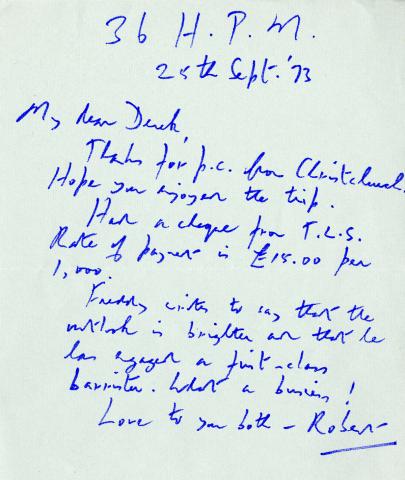 36 H.P.M.
25th Sept. '73
My dear Derek,
Thanks for p.c. from Christchurch.
Hope you enjoyed the trip.
Had a cheque from T.L.S.
Rate of payment is £15.00 per
1,000.
Freddy writes to say that the
outlook is brighter and that he
has engaged a first-class
barrister. What a business!
Love to you both - Robert